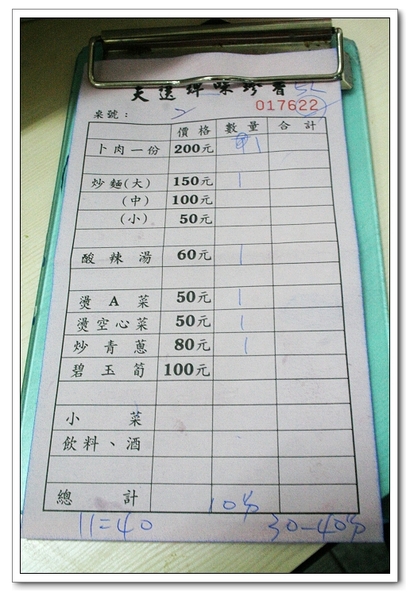 天送埤味珍香 52
017622
桌號：
價格 數量 合計
卜肉一份 200元 1
炒麵(大) 150元 1
(中) 100元
(小) 50元
酸辣湯 60元 1
燙A菜 50元 1
燙空心菜 50元 1
炒青蔥 80元 1
碧玉筍 100元
小菜
飲料、酒
總計
10分
11=40 30-40分